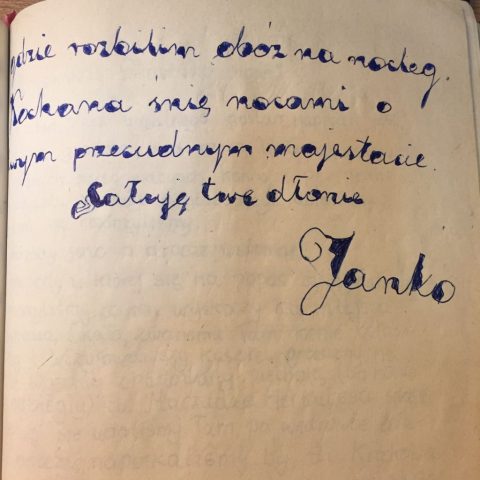 gdzie rozbilim obóz na nocleg.
Kochana śnię nocami o
wym przecudnym majestacie.
Całuję twe dłonie
Janko